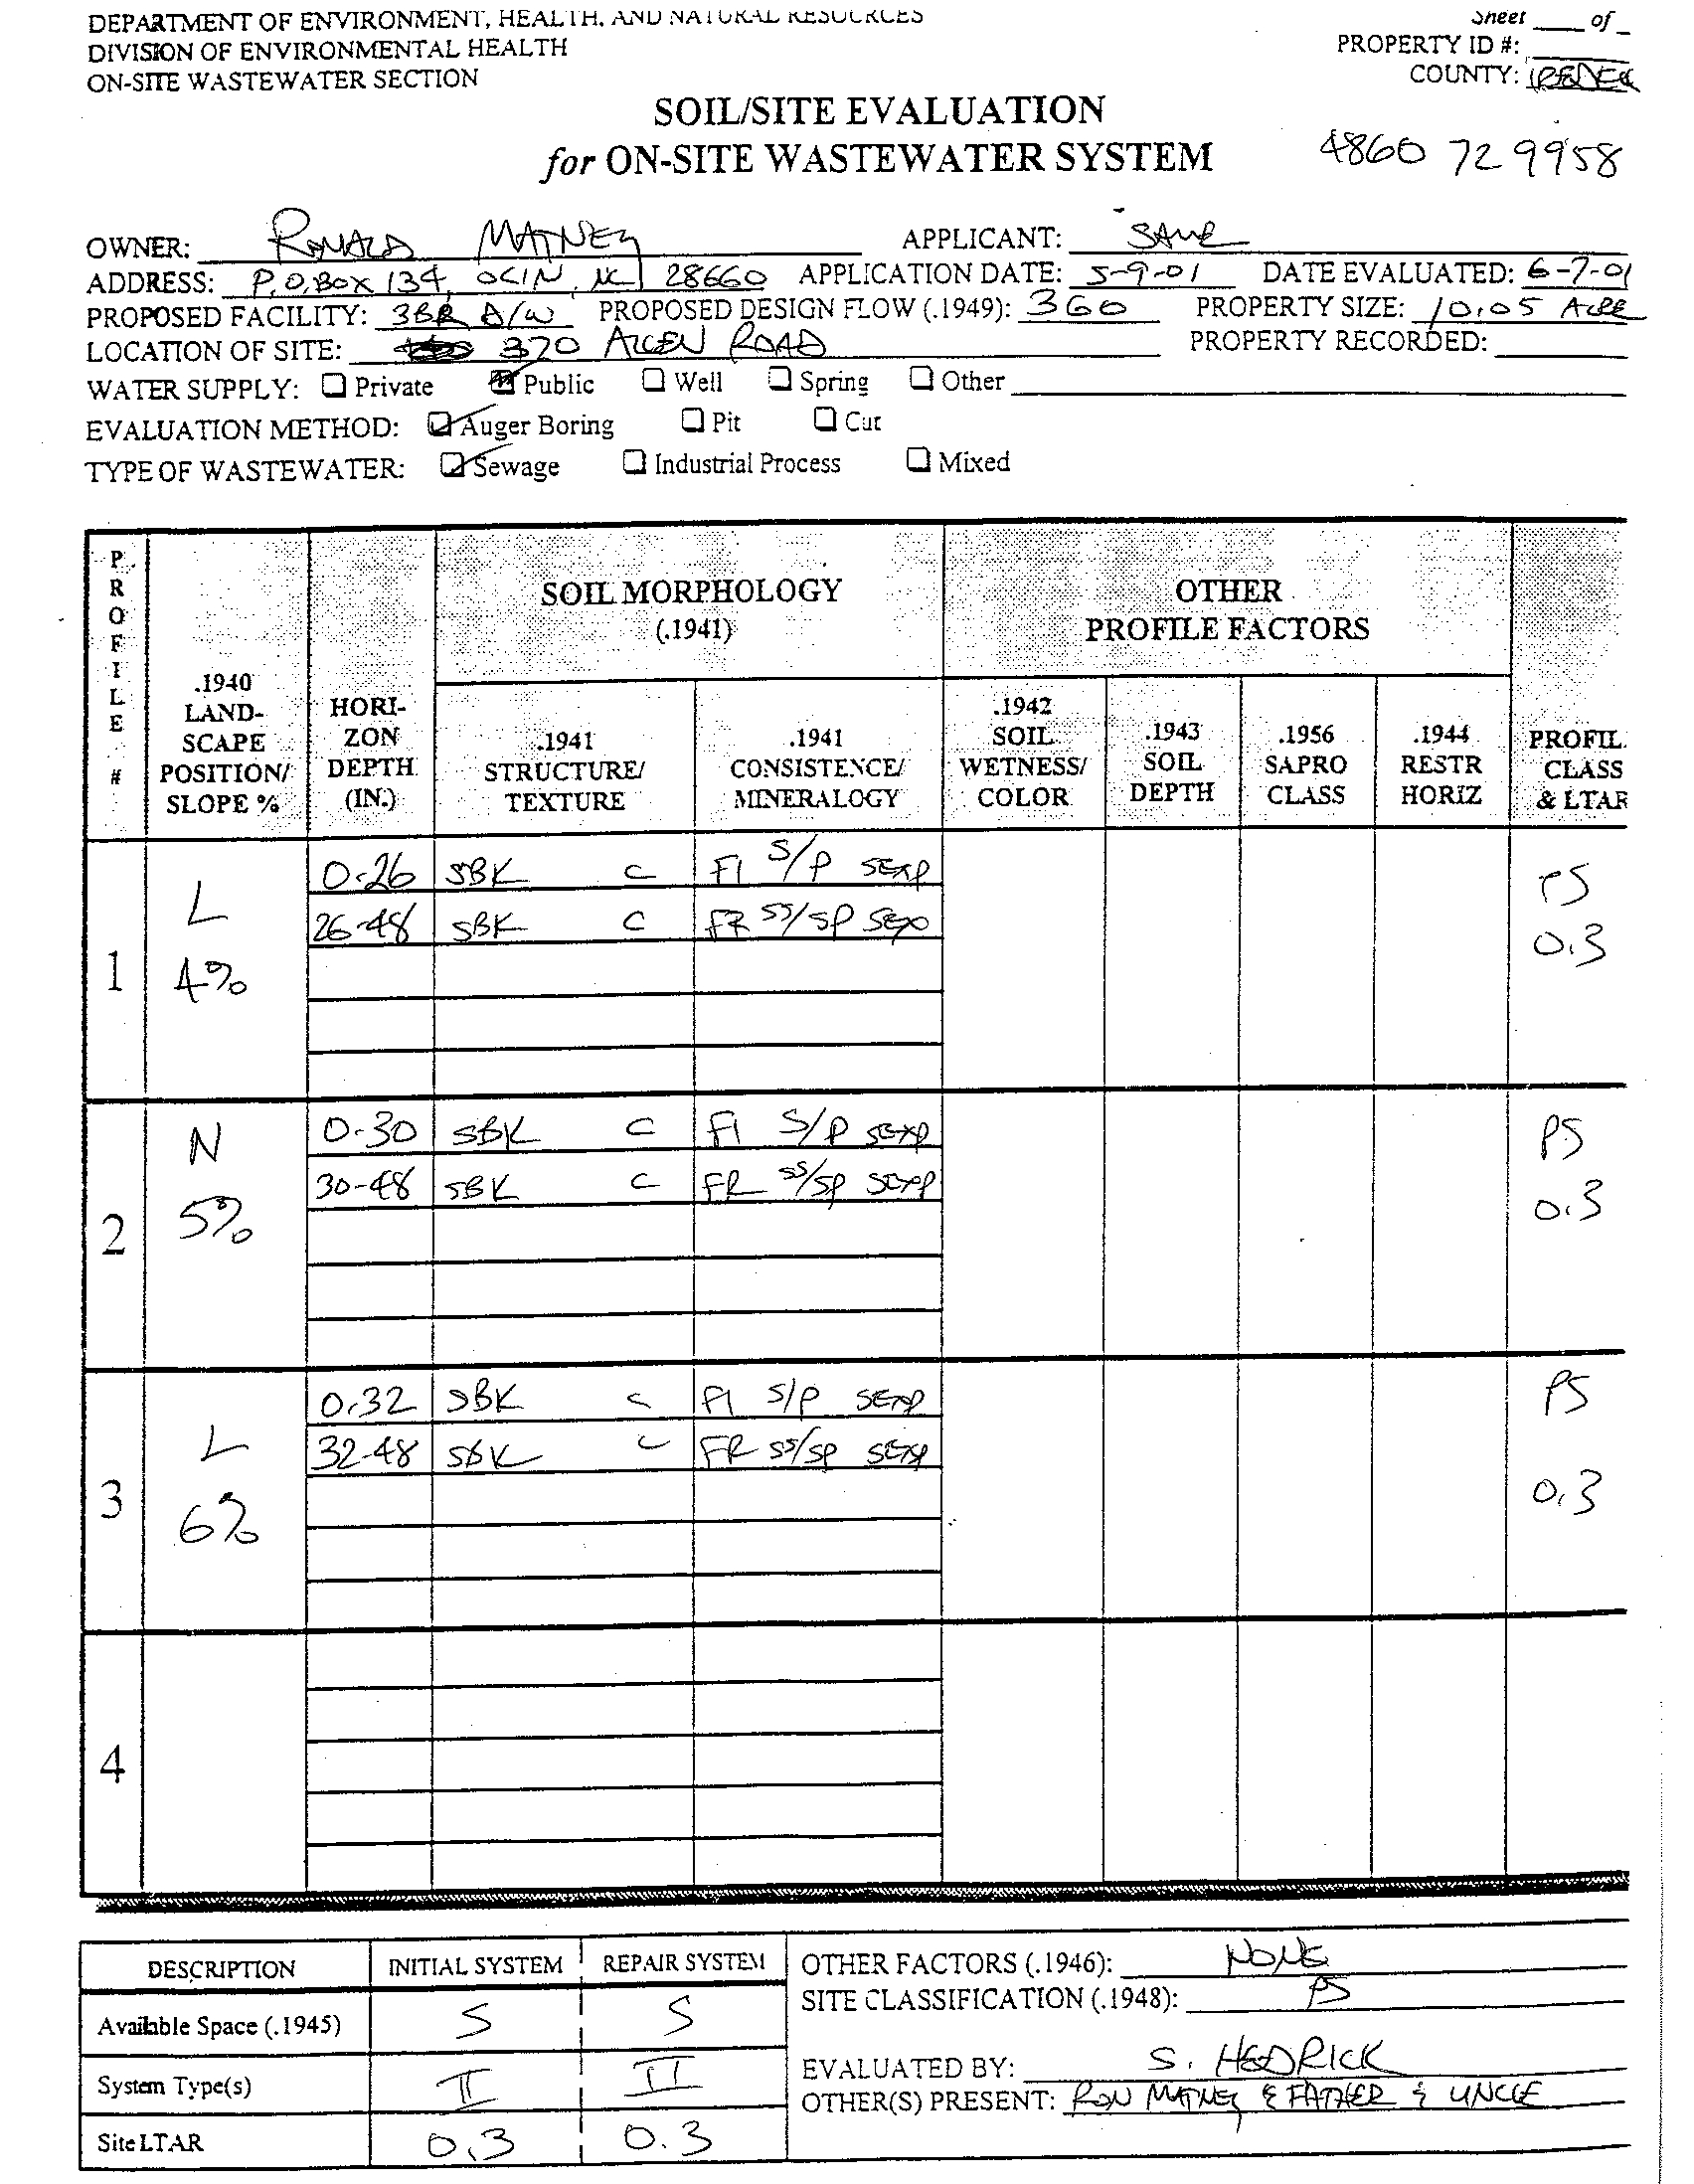 DEPARTMENT OF ENVIRONMENT, HEALTH, AND NATURAL RESOURCES
DIVISION OF ENVIRONMENTAL HEALTH
ON-SITE WASTEWATER SECTION
Sheet ___ of _
PROPERTY ID #:
COUNTY: IREDELL
SOIL/SITE EVALUATION
for ON-SITE WASTEWATER SYSTEM
4860 72 9958
OWNER: RONALD MATNEY APPLICANT: SAME
ADDRESS: P.O. BOX 134, OLIN, NC 28660 APPLICATION DATE: 5-9-01 DATE EVALUATED: 6-7-01
PROPOSED FACILITY: 3BR D/W PROPOSED DESIGN FLOW (.1949): 360 PROPERTY SIZE: 10.05 ACRE
LOCATION OF SITE: 370 ALLEN ROAD PROPERTY RECORDED:
WATER SUPPLY: Private Public Well Spring Other
EVALUATION METHOD: Auger Boring Pit Cut
TYPE OF WASTEWATER: Sewage Industrial Process Mixed
PROFILE #
.1940 LAND-SCAPE POSITION/ SLOPE %
HORI-ZON DEPTH (IN.)
SOIL MORPHOLOGY (.1941)
.1941 STRUCTURE/ TEXTURE
.1941 CONSISTENCE/ MINERALOGY
OTHER PROFILE FACTORS
.1942 SOIL WETNESS/ COLOR
.1943 SOIL DEPTH
.1956 SAPRO CLASS
.1944 RESTR HORIZ
PROFIL CLASS & LTAR
1 L 4%
0-26 SBK C FI S/P SEXP
26-48 SBK C FR SS/SP SEXP
PS 0.3
2 N 5%
0-30 SBK C FI S/P SEXP
30-48 SBK C FR SS/SP SEXP
PS 0.3
3 L 6%
0-32 SBK C FI S/P SEXP
32-48 SBK C FR SS/SP SEXP
PS 0.3
4
DESCRIPTION INITIAL SYSTEM REPAIR SYSTEM
Available Space (.1945) S S
System Type(s) II II
Site LTAR 0.3 0.3
OTHER FACTORS (.1946): NONE
SITE CLASSIFICATION (.1948): PS
EVALUATED BY: S. HEDRICK
OTHER(S) PRESENT: RON MATNEY & FATHER & UNCLE